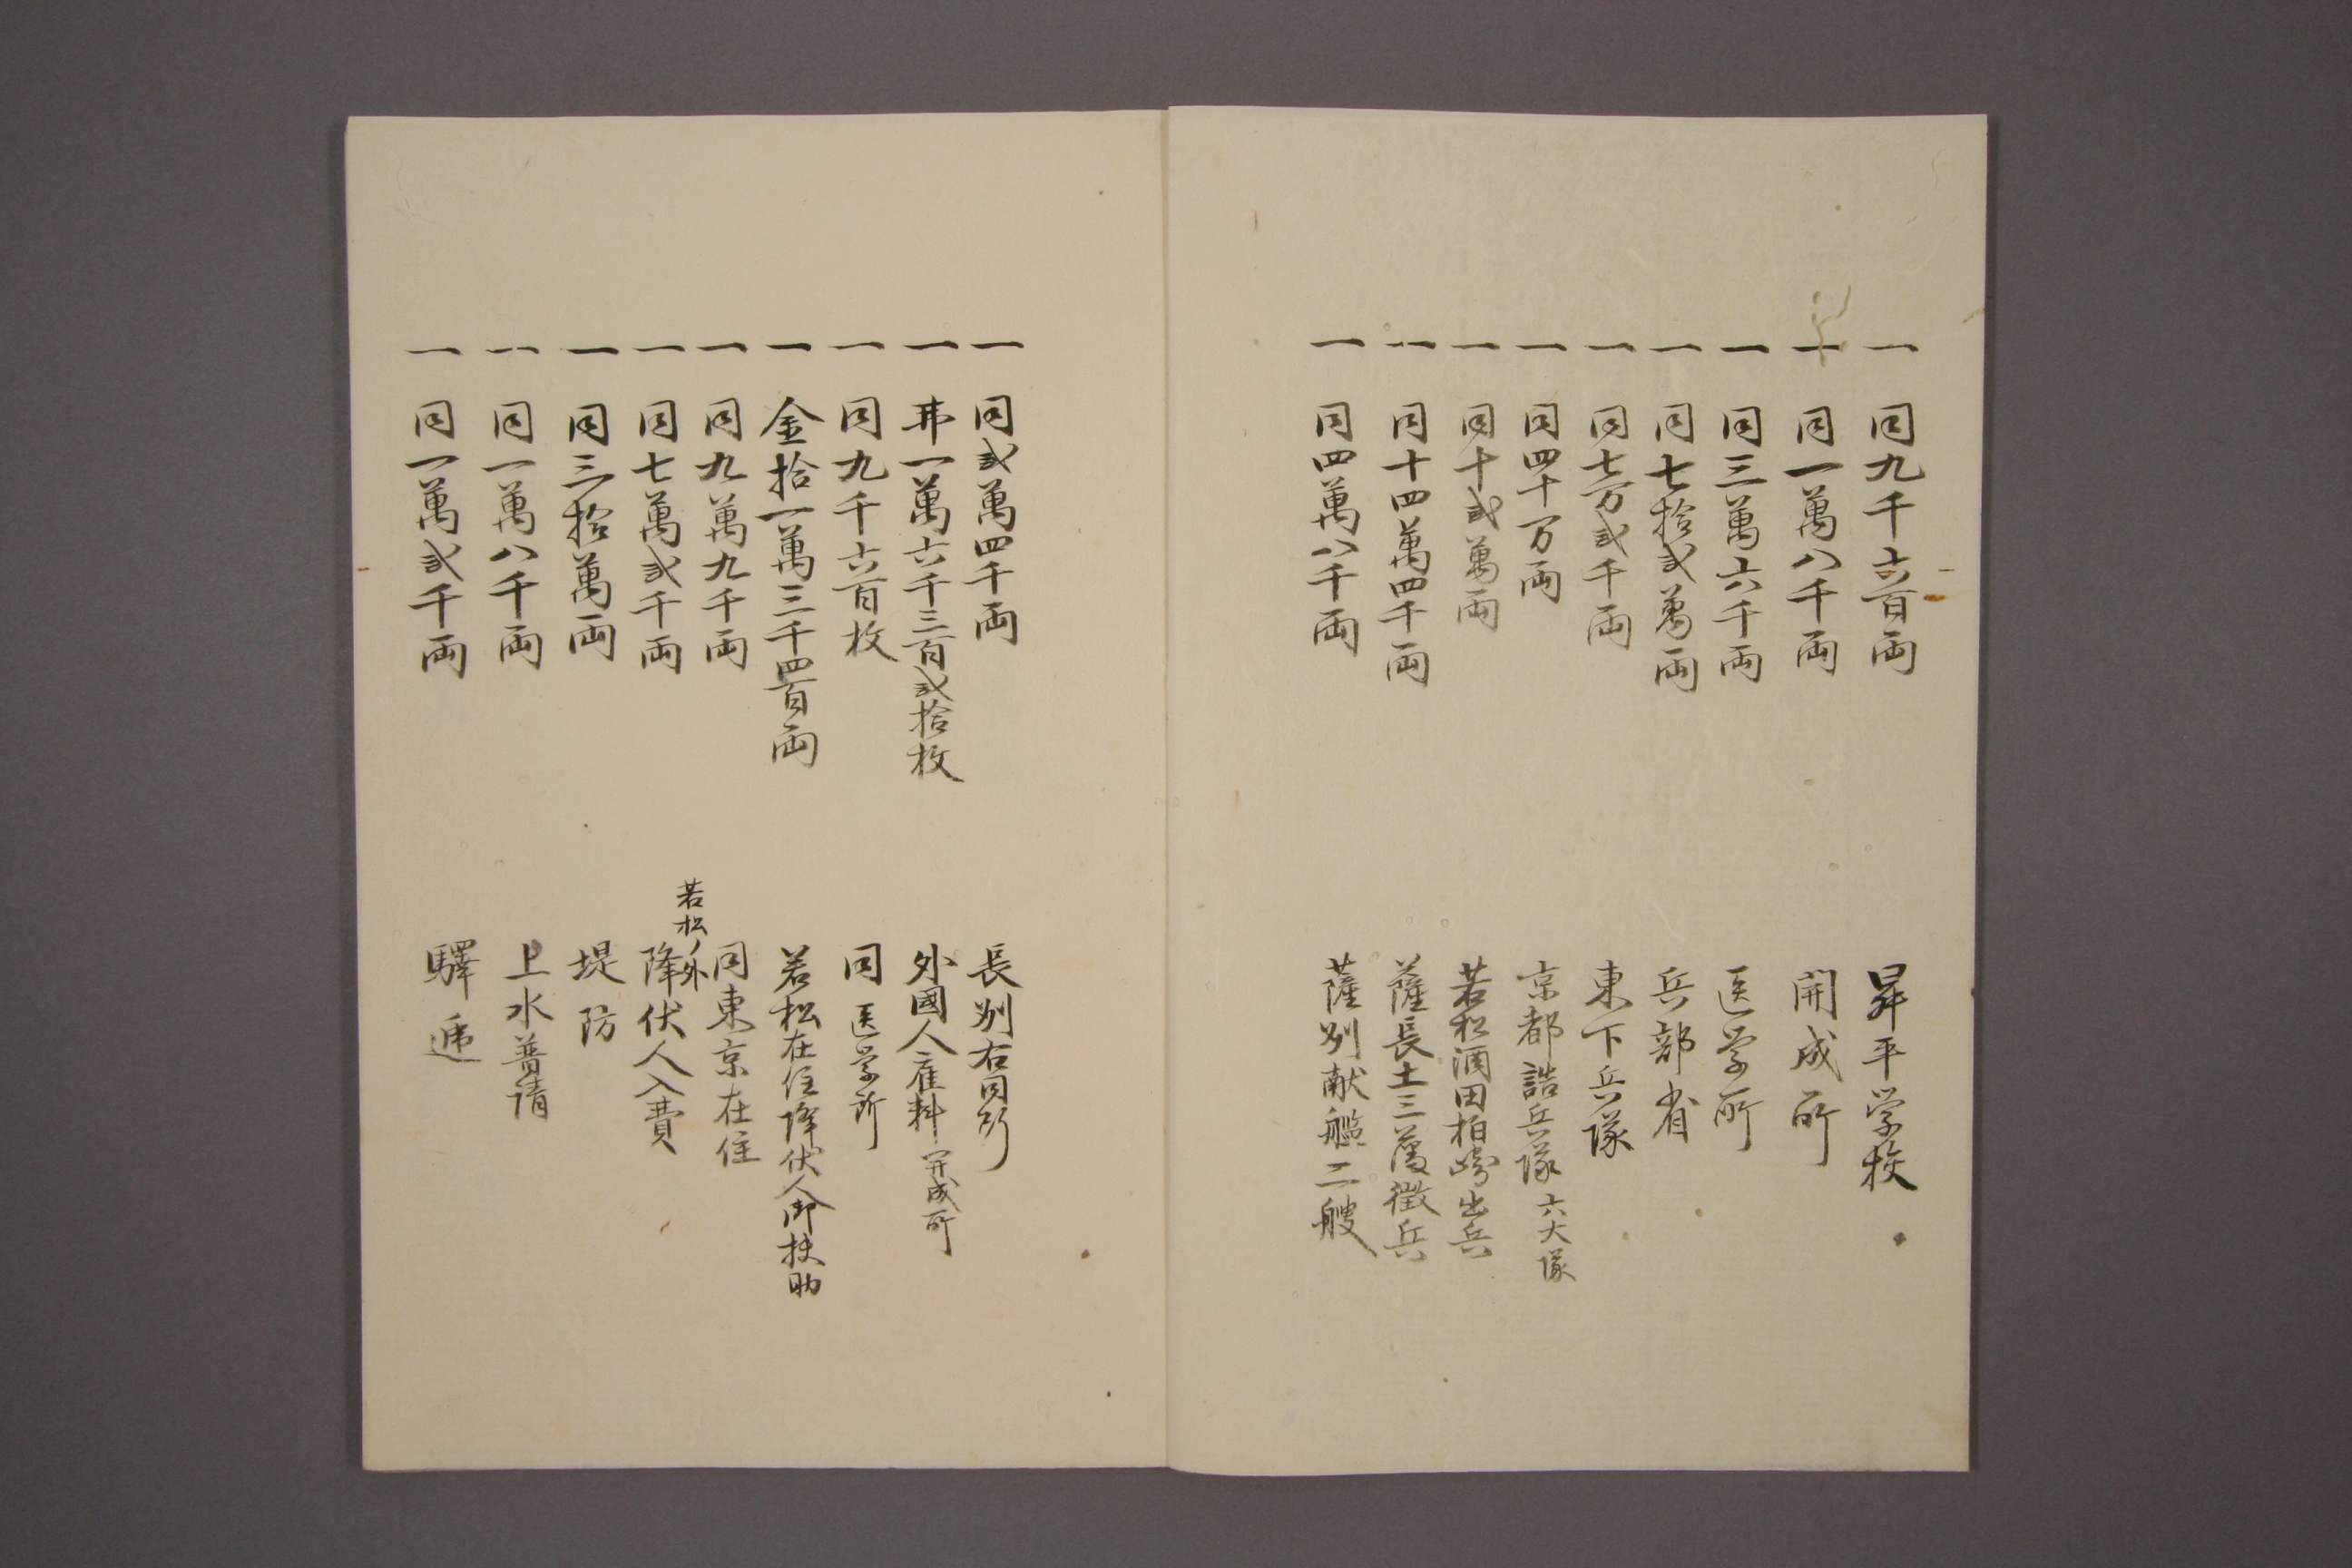 一 同九千六百両 昇平学校
一 同一萬八千両 開成所
一 同三萬六千両 医学所
一 同七拾弐萬両 兵部省
一 同七万弐千両 東下兵隊
一 同四十万両 京都詰兵隊六大隊
一 同十弐萬両 若松酒田柏崎出兵
一 同十四萬四千両 薩長土三藩徴兵
一 同四萬八千両 薩州献艦二艘
一 同弐萬四千両 長州右同断
一 弗一萬六千三百弐拾枚 外國人雇料開成所
一 同九千六百枚 同医学所
一 金拾一萬三千四百両 若松在住降伏人御扶助
一 同九萬九千両 同東京在住
一 同七萬弐千両 若松ノ外降伏人入費
一 同三拾萬両 堤防
一 同一萬八千両 上水普請
一 同一萬弐千両 驛逓